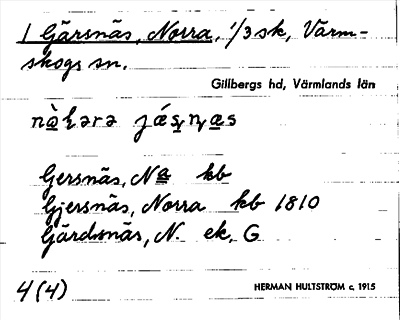 1 Gärsnäs, Norra, 1/3 sk, Värm-
skogs sn.
Gillbergs hd, Värmlands län
Gersnäs, Na kb
Gjersnäs, Norra kb 1810
Gärdsnäs, N. ek, G
4 (4)
HERMAN HULTSTRÖM c. 1915